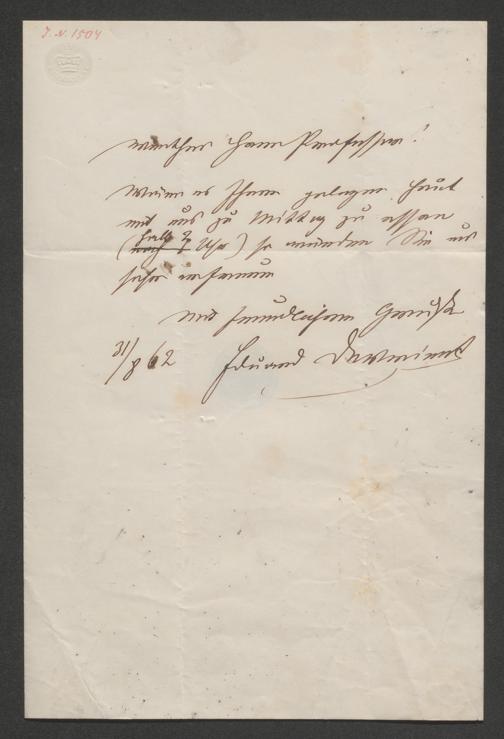 J. N. 1504
Werther Herr Professor!
Wenn es Ihnen gelegen heut
mit uns zu Mittag zu essen
(halb 2 Uhr) so würden Sie uns
sehr erfreuen
Mit freundlichem Gruß
31/8 62 Eduard Devrient